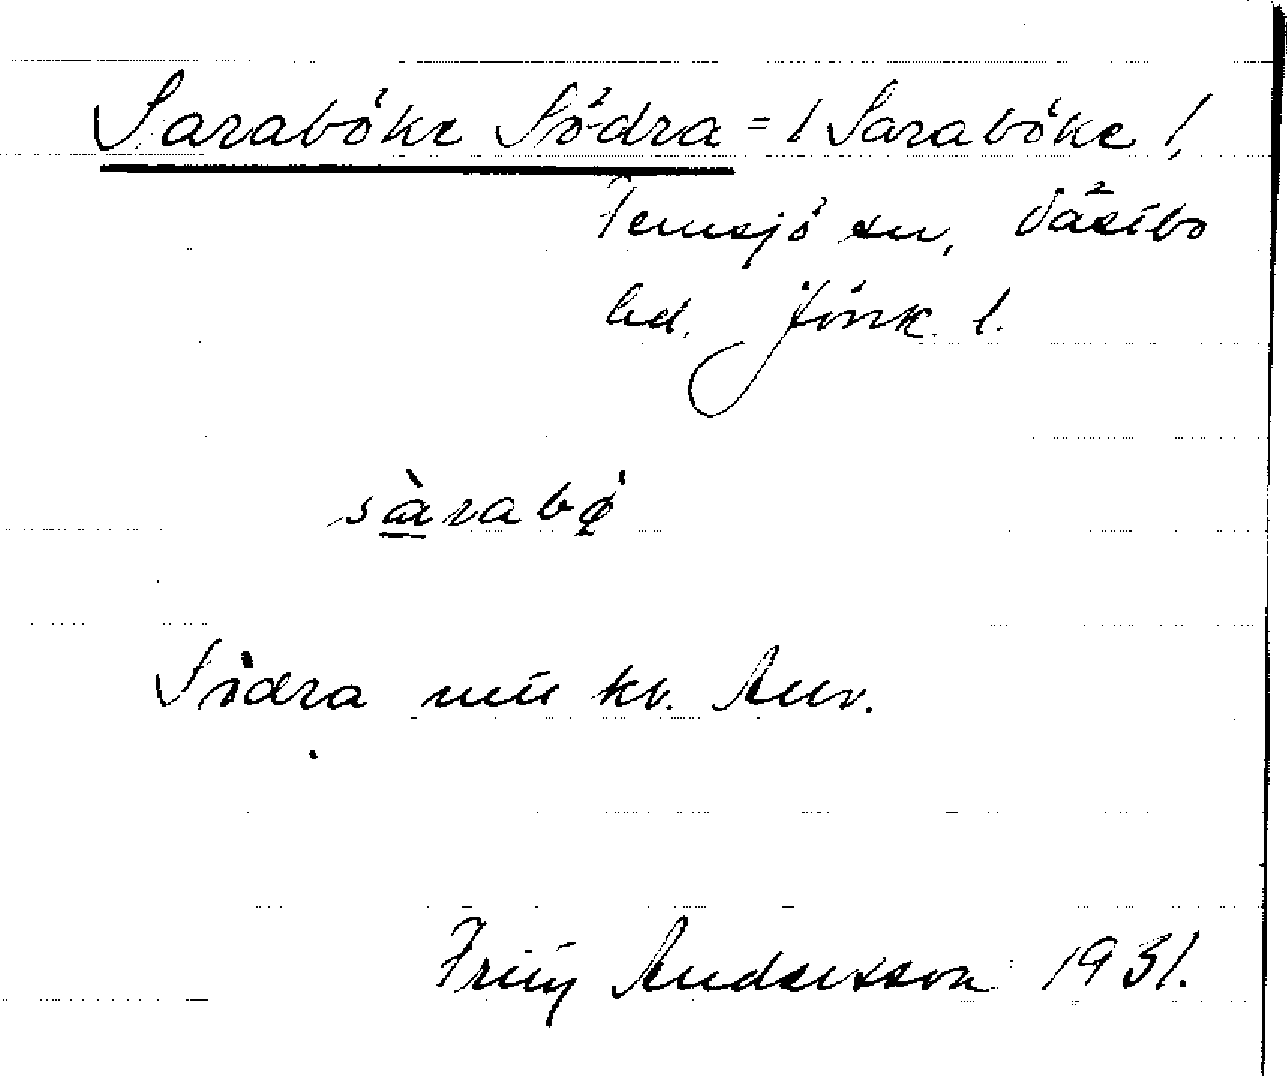 Saraböke Södra = / Saraböke /,
Femsjö sn, Västbo
hd. Jönk. l.
sàrabø
Södra nu kv. Anv.
Frity Andersson 1931.